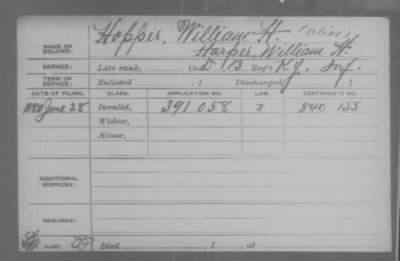 Hopper, William H. (alias)
NAME OF SOLDIER: Harper, William H.
SERVICE: Late rank, Co. D, 13 Reg't Ky. Inf.
TERM OF SERVICE: Enlisted , 1 Discharged , 1
DATE OF FILING. CLASS. APPLICATION NO. LAW. CERTIFICATE NO.
1880 June 28 Invalid, 391 058 J 840 155
Widow,
Minor,
ADDITIONAL SERVICES:
REMARKS:
Died , 1 , at